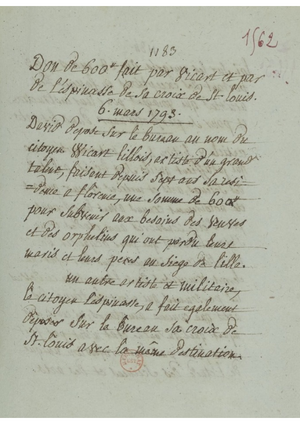 1183
1562
Don de 600# fait par Vicart et par
de l'espinasse de sa croix de St Louis.
6. mars 1793.
David depose sur le bureau au nom du
citoyen Vicart lillois, artiste d'un grand
talent, faisant depuis sept ans sa resi=
=dence a florence, une somme de 600#
pour subvenir aux besoins des veuves
et des orphelins qui ont perdu leurs
maris et leurs peres au siege de lille.
un autre artiste et militaire,
le citoyen l'espinasse, a fait également
deposer sur le bureau sa croix de
St Louis avec la même destination.